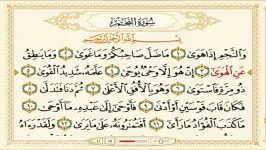 سُورَةُ النَّجْمِ
بِسْمِ اللَّهِ الرَّحْمَٰنِ الرَّحِيمِ
وَالنَّجْمِ إِذَا هَوَىٰ ١ مَا ضَلَّ صَاحِبُكُمْ وَمَا غَوَىٰ ٢ وَمَا يَنطِقُ
عَنِ الْهَوَىٰ ٣ إِنْ هُوَ إِلَّا وَحْيٌ يُوحَىٰ ٤ عَلَّمَهُ شَدِيدُ الْقُوَىٰ ٥
ذُو مِرَّةٍ فَاسْتَوَىٰ ٦ وَهُوَ بِالْأُفُقِ الْأَعْلَىٰ ٧ ثُمَّ دَنَا فَتَدَلَّىٰ ٨
فَكَانَ قَابَ قَوْسَيْنِ أَوْ أَدْنَىٰ ٩ فَأَوْحَىٰ إِلَىٰ عَبْدِهِ مَا أَوْحَىٰ ١٠
مَا كَذَبَ الْفُؤَادُ مَا رَأَىٰ ١١ أَفَتُمَارُونَهُ عَلَىٰ مَا يَرَىٰ ١٢ وَلَقَدْ رَآهُ